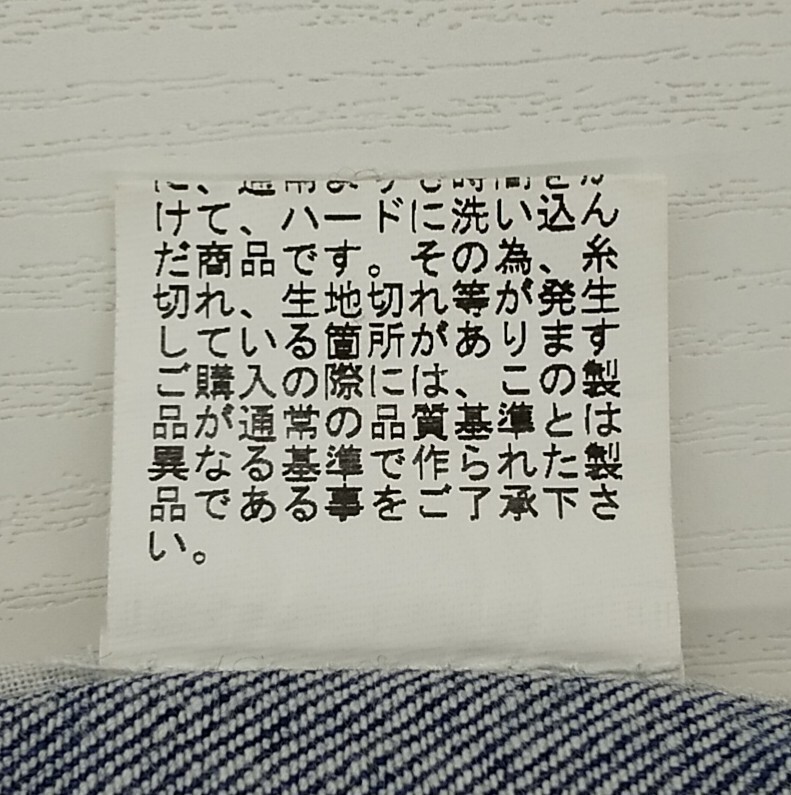 に、通常よりも時間をか
けて、ハードに洗い込ん
だ商品です。その為、糸
切れ、生地切れ等が発生
している箇所があります
ご購入の際には、この製
品が通常の品質基準とは
異なる基準で作られた製
品である事をご了承下さ
い。